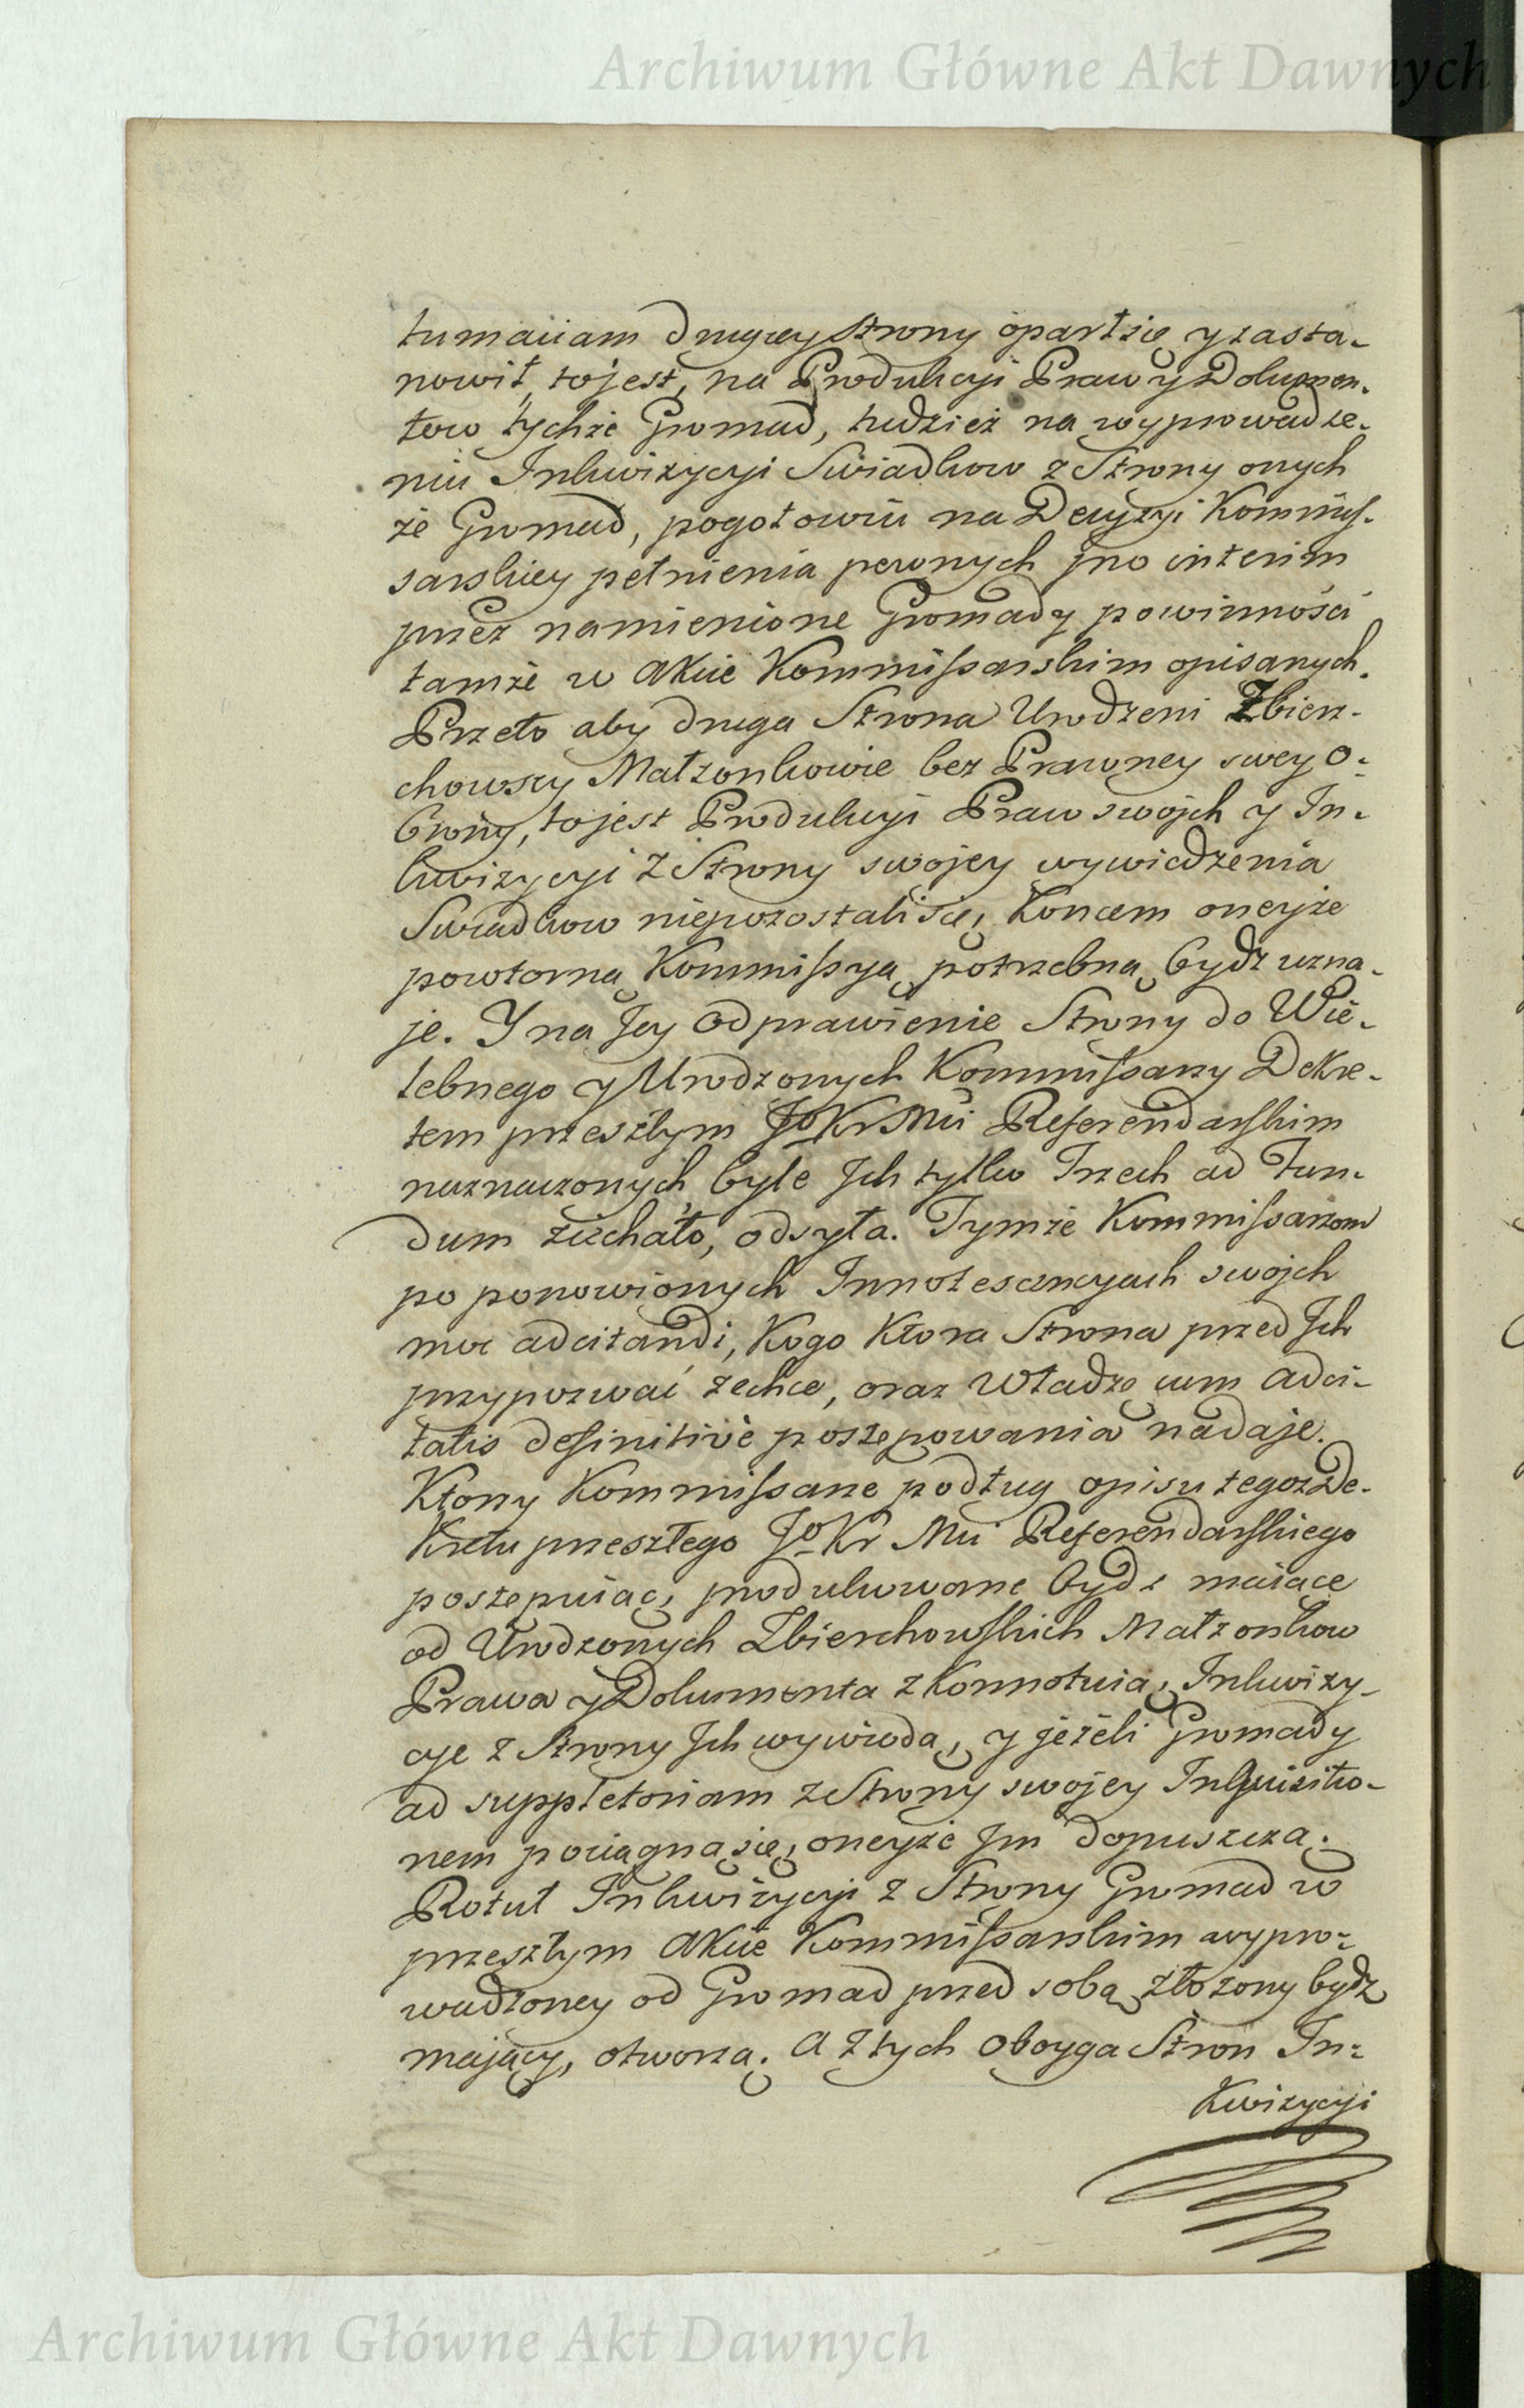 Archiwum Główne Akt Dawnych
tumaciam drugiey Strony oparł się y zasta-
nowił, to jest, na Produkcyi Praw y Dokumen-
tow tychże Gromad, tudzież na wyprowadze-
niu Inkwizycyi Swiadkow z Strony onych
że Gromad, pogotowiu na Decyzyi Kommis-
sarskiey pełnienia pewnych pro interim
przez namienione Gromady powinności
tamże w Akcie Kommissarskim opisanych.
Przeto aby druga Strona Urodzeni Zbierz-
chowscy Małżonkowie bez Prawney swey O-
brony, to jest Produkcyi Praw swojch y In-
kwizycyi z Strony swojey wywiedzenia
Swiadkow niepozostali się, Koncem oneyże
powtorną Kommissyą potrzebną bydź uzna-
je. Y na Jey odprawienie Strony do Wie-
lebnego y Urodzonych Kommissarzy Dekre-
tem przeszłym Jo Kr Mci Referendarskim
naznaczonych, byle Jch tylko Trzech ad Fun-
dum ziechało, odsyła. Tymże Kommissarzom
po ponowionych Innotescencyach swojch
moc adcitandi, Kogo Ktora Strona przed Jch
przypozwać zechce, oraz Władzę cum adci-
tatis definitivè postępowania nadaje.
Ktorzy Kommissarze podług opisu tegoż De-
kretu przeszłego Jo Kr Mci Referendarskiego
postępuiąc, produkowane bydź maiące
od Urodzonych Zbierchowskich Małżonkow
Prawa y Dokumenta zkonnotuią, Inkwizy-
cye z Strony Jch wywiodą, y jeżeli Gromady
ad suppletoriam z Strony swojey Inquisitio-
nem pociągną się, oneyże Jm dopuszczą.
Rotuł Inkwizycyi z Strony Gromad w
przeszłym Akcie Kommissarskim wypro-
wadzoney od Gromad przed sobą złożony bydź
mający, otworzą. A z tych oboyga Stron In-
Kwizycyi
Archiwum Główne Akt Dawnych